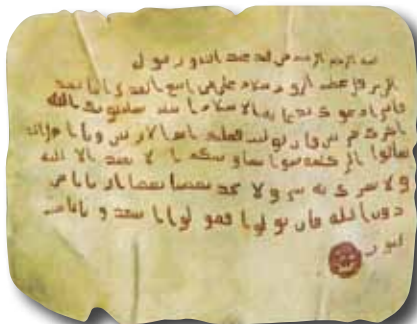 الرحمن الرحيم من محمد عبد الله ورسول
هرقل عظيم الروم سلام على من اتبع الهدى اما بعد
فاني ادعوك بدعاية الاسلام اسلم تسلم يوتك الله
اجرك مرتين فان توليت فعليك اثم ويا اهل
تعالوا الى كلمة سوا بيننا وبينكم الا نعبد الا الله
ولا نشرك به ولا يتخذ بعضنا بعضا اربابا من
دون الله فان تولوا فقولوا بانا مس
لمون